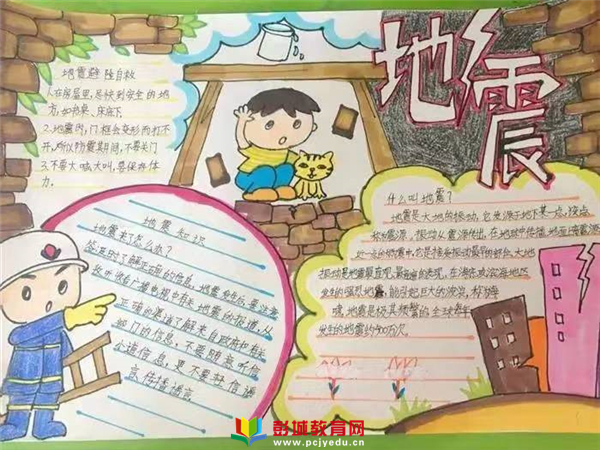 地震
地震避险自救
1.在房屋里,尽快到安全的地
方,如书桌、床底下
2.地震时,门框会变形而打不
开,所以防震期间,不要关门
3.不要大喊大叫,要保存体
力.
地震知识
地震来了怎么办?
收听收看广播电视中有关地震的报道,从
正确的渠道了解来自政府和有关
部门的信息,不要随意听信
小道信息,更不要轻信谣
言传播谣言
什么叫地震?
地震是大地的振动,它发源于地下某一点,该点
称为震源,振动从震源传出,在地球中传播,地面
动,它是接受振动最早的部位,大地
振动是地震最直观,最普遍的表现,在海底或滨海地区
发生的强烈地震,能引起巨大的波浪,称为海
啸,地震是极其频繁的,全球每年
发生的地震约500万次.
彭城教育网
www.pcjyedu.cn